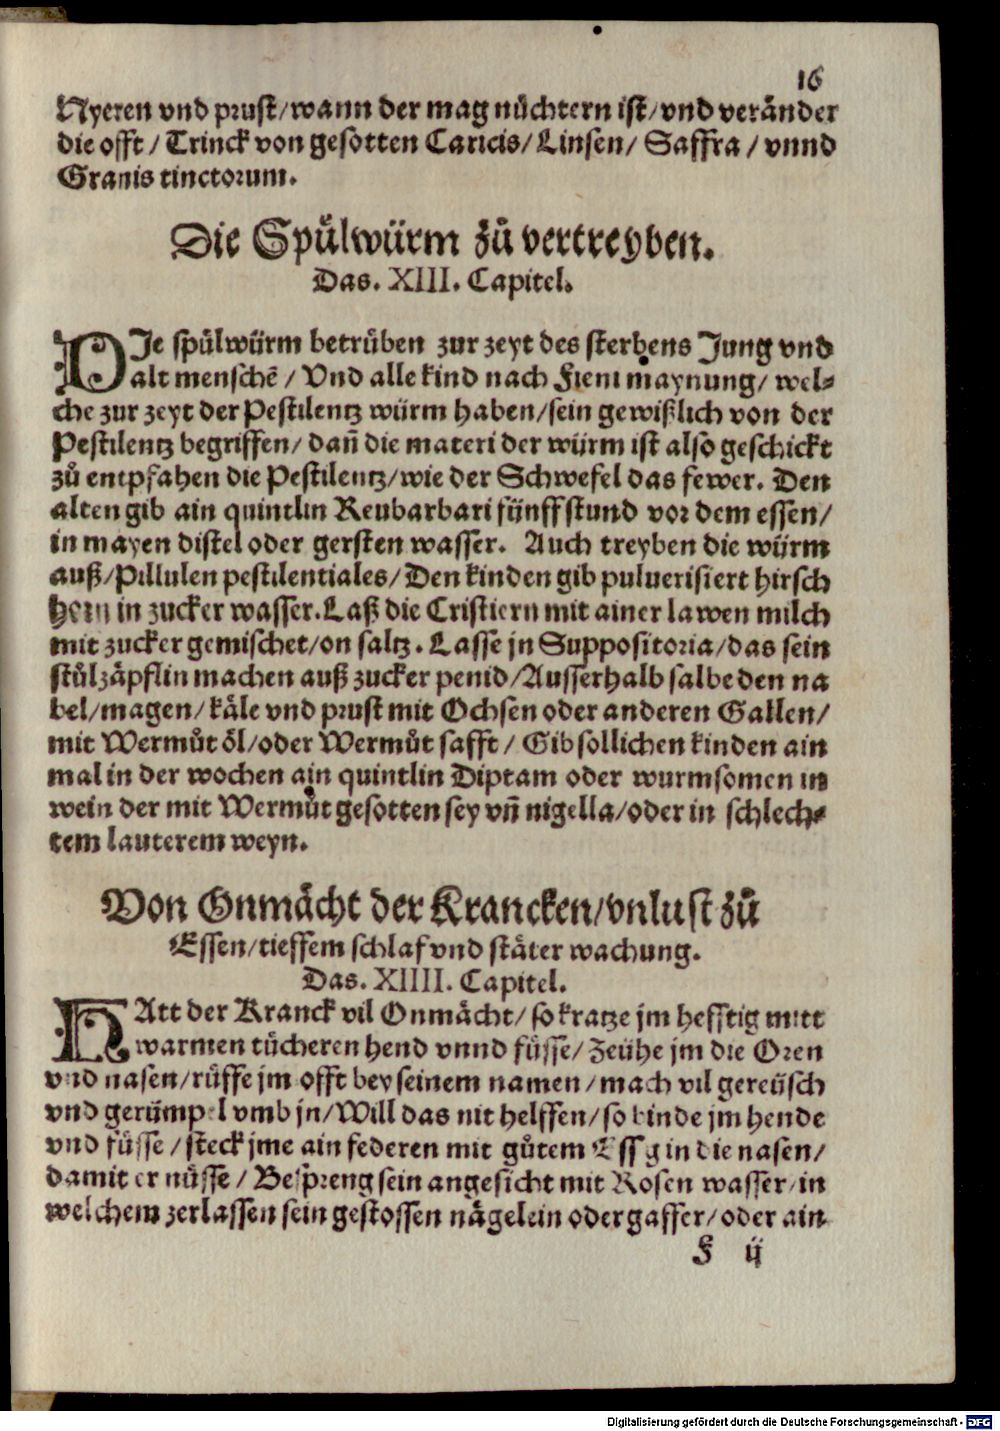 16
Nyeren vnd prust/wann der mag nüchtern ist/vnd veränder
die offt/Trinck von gesotten Caricis/Linsen/Saffra/vnnd
Granis tinctorum.
Die Spůlwürm zů vertreyben.
Das. XIII. Capitel.
DIe spůlwürm betrůben zur zeyt des sterbens Jung vnd
alt menschē/Vnd alle kind nach Fieni maynung/wel-
che zur zeyt der Pestilentz würm haben/sein gewißlich von der
Pestilentz begriffen/dañ die materi der würm ist also geschickt
zů entpfahen die Pestilentz/wie der Schwefel das fewer. Den
alten gib ain quintlin Reubarbari fünff stund vor dem essen/
in mayen distel oder gersten wasser. Auch treyben die würm
auß/Pillulen pestilentiales/Den kinden gib puluerisiert hirsch
horn in zucker wasser. Laß die Cristiern mit ainer lawen milch
mit zucker gemischet/on saltz. Lasse jn Suppositoria/das sein
stůlzäpflin machen auß zucker penid/Ausserhalb salbe den na
bel/magen/käle vnd prust mit Ochsen oder anderen Gallen/
mit Wermůt öl/oder Wermůt safft/Gib sollichen kinden ain
mal in der wochen ain quintlin Diptam oder wurmsomen in
wein der mit Wermůt gesotten sey vñ nigella/oder in schlech-
tem lauterem weyn.
Von Onmächt der Krancken/vnlust zů
Essen/tieffem schlaf vnd stäter wachung.
Das. XIIII. Capitel.
HAtt der Kranck vil Onmächt/so kratze jm hefftig mitt
warmen tücheren hend vnnd füsse/Zeühe jm die Oren
vnd nasen/růffe jm offt bey seinem namen/mach vil gereüsch
vnd gerümpel vmb jn/Will das nit helffen/so binde jm hende
vnd füsse/steck jme ain federen mit gůtem Essig in die nasen/
damit er nüsse/Bespreng sein angesicht mit Rosen wasser/in
welchem zerlassen sein gestossen nägelein oder gaffer/oder ain
F ij
Digitalisierung gefördert durch die Deutsche Forschungsgemeinschaft - DFG